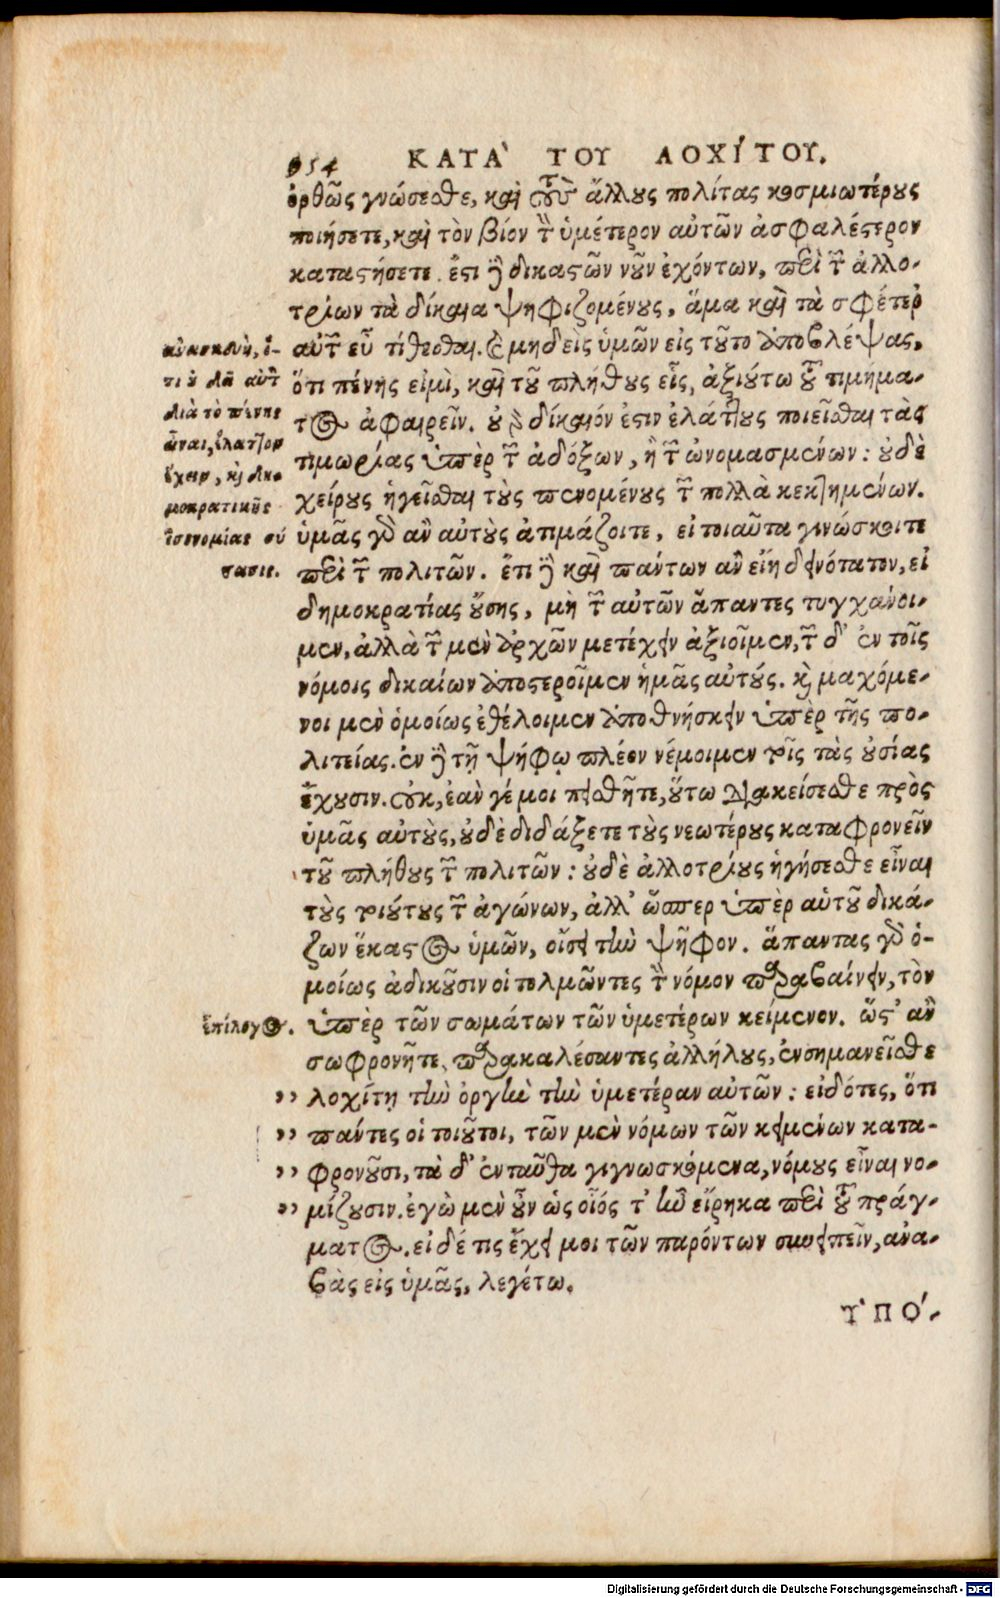 954 ΚΑΤΑ` ΤΟΥ ΛΟΧΙ´ΤΟΥ.
ὀρθῶς γνώσεσθε, καὶ τοὺς ἄλλους πολίτας κοσμιωτέρους
ποιήσετε, καὶ τὸν βίον τὸν ὑμέτερον αὐτῶν ἀσφαλέστερον
καταστήσετε. ἔστι δὲ δικαστῶν νοῦν ἐχόντων, περὶ τῶν ἀλλο-
τρίων τὰ δίκαια ψηφιζομένους, ἅμα καὶ τὰ σφέτερα
αὐτῶν εὖ τίθεσθαι. καὶ μηδεὶς ὑμῶν εἰς τοῦτο ἀποβλέψας,
ὅτι πένης εἰμὶ, καὶ τοῦ πλήθους εἷς, ἀξιούτω τοῦ τιμήμα-
τος ἀφαιρεῖν. οὐ γὰρ δίκαιόν ἐστιν ἐλάττους ποιεῖσθαι τὰς
τιμωρίας ὑπὲρ τῶν ἀδόξων, ἢ τῶν ὠνομασμένων: οὐδὲ
χείρους ἡγεῖσθαι τοὺς πενομένους τῶν πολλὰ κεκτημένων.
ὑμᾶς γὰρ ἂν αὐτοὺς ἀτιμάζοιτε, εἰ τοιαῦτα γινώσκοιτε
περὶ τῶν πολιτῶν. ἔτι δὲ καὶ πάντων ἂν εἴη δεινότατον, εἰ
δημοκρατίας οὔσης, μὴ τῶν αὐτῶν ἅπαντες τυγχάνοι-
μεν, ἀλλὰ τῶν μὲν ἀρχῶν μετέχειν ἀξιοῖμεν, τῶν δ' ἐν τοῖς
νόμοις δικαίων ἀποστεροῖμεν ἡμᾶς αὐτούς. καὶ μαχόμε-
νοι μὲν ὁμοίως ἐθέλοιμεν ἀποθνήσκειν ὑπὲρ τῆς πο-
λιτείας. ἐν δὲ τῇ ψήφῳ πλέον νέμοιμεν τοῖς τὰς οὐσίας
ἔχουσιν. οὐκ, ἐάν γέ μοι πεισθῆτε, οὕτω διακείσεσθε πρὸς
ὑμᾶς αὐτοὺς, οὐδὲ διδάξετε τοὺς νεωτέρους καταφρονεῖν
τοῦ πλήθους τῶν πολιτῶν: οὐδὲ ἀλλοτρίους ἡγήσεσθε εἶναι
τοὺς τοιούτους τῶν ἀγώνων, ἀλλ' ὥσπερ ὑπὲρ αὑτοῦ δικά-
ζων ἕκαστος ὑμῶν, οἴσει τὴν ψῆφον. ἅπαντας γὰρ ὁ-
μοίως ἀδικοῦσιν οἱ τολμῶντες τὸν νόμον παραβαίνειν, τὸν
ὑπὲρ τῶν σωμάτων τῶν ὑμετέρων κείμενον. ὥστ' ἂν
σωφρονῆτε, παρακαλέσαντες ἀλλήλους, ἐνσημανεῖσθε
,, λοχίτῃ τὴν ὀργὴν τὴν ὑμετέραν αὐτῶν: εἰδότες, ὅτι
,, πάντες οἱ τοιοῦτοι, τῶν μὲν νόμων τῶν κειμένων κατα-
,, φρονοῦσι, τὰ δ' ἐνταῦθα γιγνωσκόμενα, νόμους εἶναι νο-
,, μίζουσιν. ἐγὼ μὲν οὖν ὡς οἷός τ' ἦν εἴρηκα περὶ τοῦ πράγ-
ματος. εἰ δέ τις ἔχει μοι τῶν παρόντων συνειπεῖν, ἀνα-
βὰς εἰς ὑμᾶς, λεγέτω.
ΥΠΟ´-
ἀνασκευὴ, ὅ-
τι οὐ δεῖ αὐτὸν
διὰ τὸ πένης
εἶναι, ἔλαττον
ἔχειν, καὶ δημο
μοκρατικῆς
ἰσονομίας σύ
στασις.
ἐπίλογος.
Digitalisierung gefördert durch die Deutsche Forschungsgemeinschaft - DFG